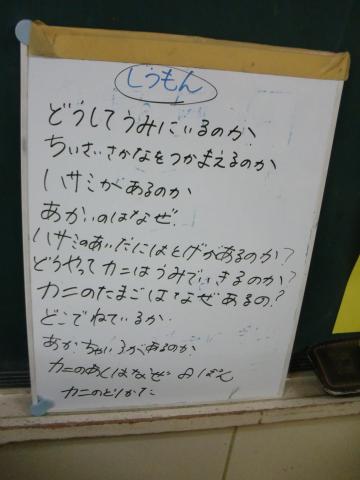 しつもん
どうしてうみにいるのか、
ちいさいさかなをつかまえるのか
ハサミがあるのか
あかいのはなぜ.
ハサミのあいだにはとげがあるのか?
どうやってカニはうみでいきるのか?
カニのたまごはなぜあるの?
どこでねているか.
あか、ちゃいろがあるのか
カニのあしはなぜ 10ぽん
カニのとりかた